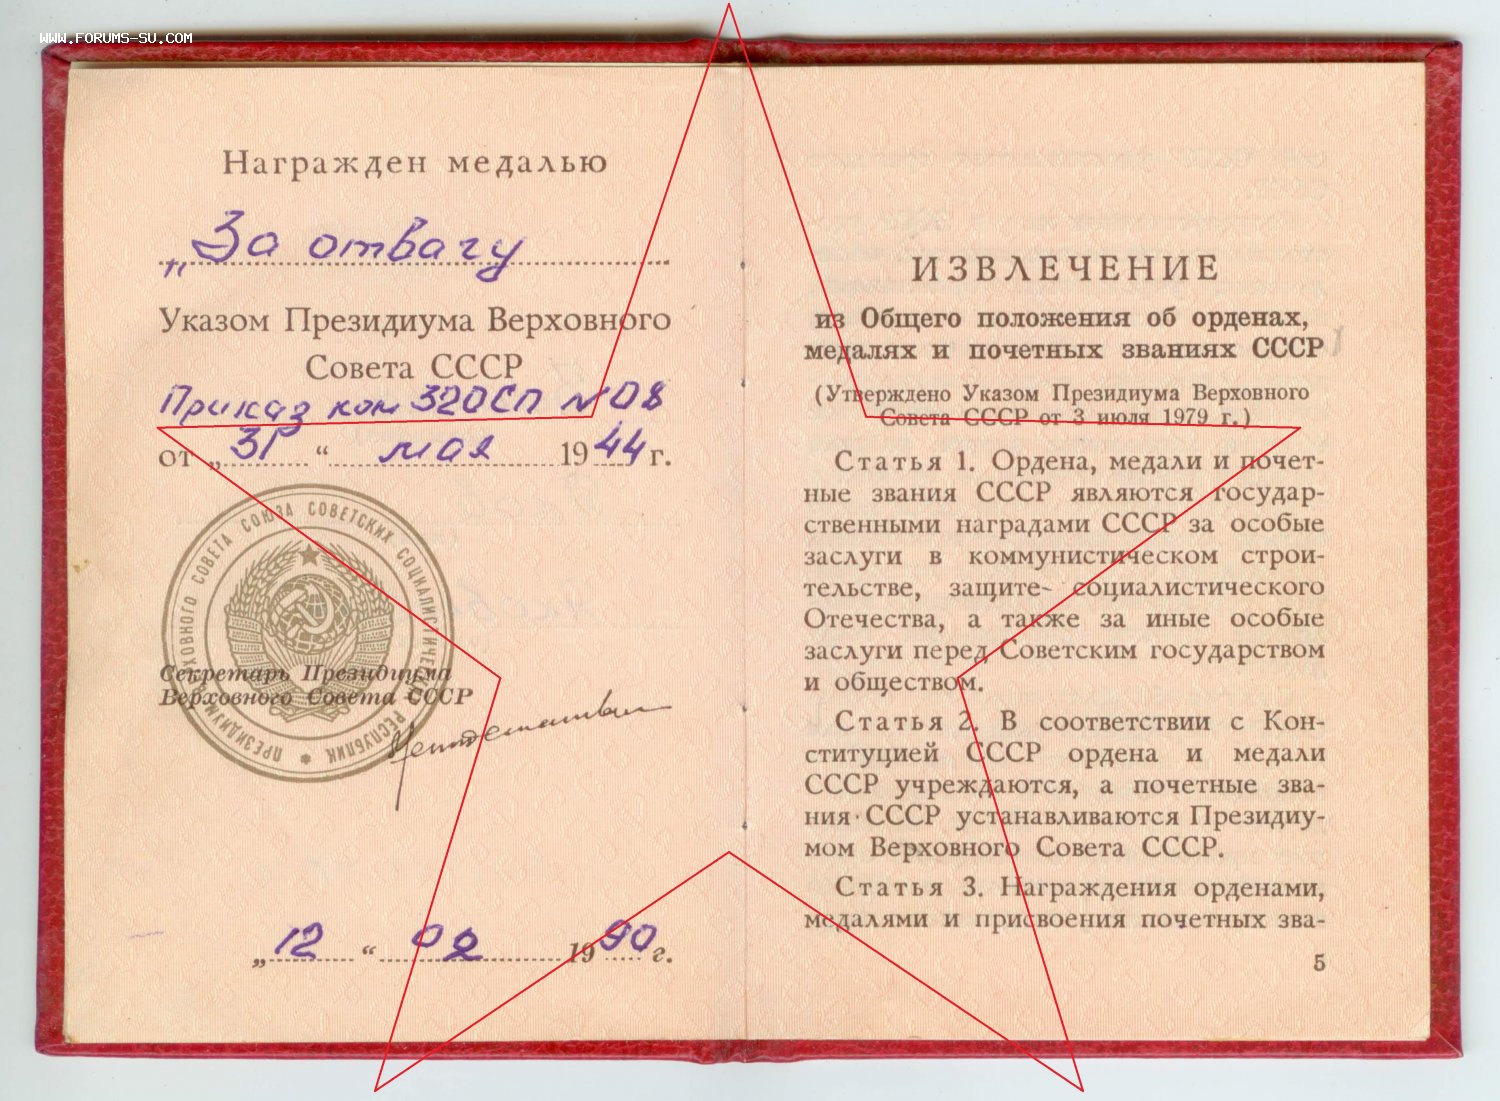 WWW.FORUMS-SU.COM
Награжден медалью
„За отвагу
Указом Президиума Верховного
Совета СССР
Приказ ком 320СП №08
от „31“ мая 1944 г.
ПРЕЗИДИУМ ВЕРХОВНОГО СОВЕТА СОЮЗА СОВЕТСКИХ СОЦИАЛИСТИЧЕСКИХ РЕСПУБЛИК
Секретарь Президиума
Верховного Совета СССР
„12“ 02 1990 г.
ИЗВЛЕЧЕНИЕ
из Общего положения об орденах,
медалях и почетных званиях СССР
(Утверждено Указом Президиума Верховного
Совета СССР от 3 июля 1979 г.)
Статья 1. Ордена, медали и почет-
ные звания СССР являются государ-
ственными наградами СССР за особые
заслуги в коммунистическом строи-
тельстве, защите социалистического
Отечества, а также за иные особые
заслуги перед Советским государством
и обществом.
Статья 2. В соответствии с Кон-
ституцией СССР ордена и медали
СССР учреждаются, а почетные зва-
ния СССР устанавливаются Президиу-
мом Верховного Совета СССР.
Статья 3. Награждения орденами,
медалями и присвоения почетных зва-
5